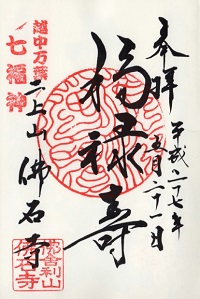 奉拝
平成二十七年
五月二十一日
福禄寿
越中万葉
七福神
二上山
佛石寺
佛舎利山
佛石寺